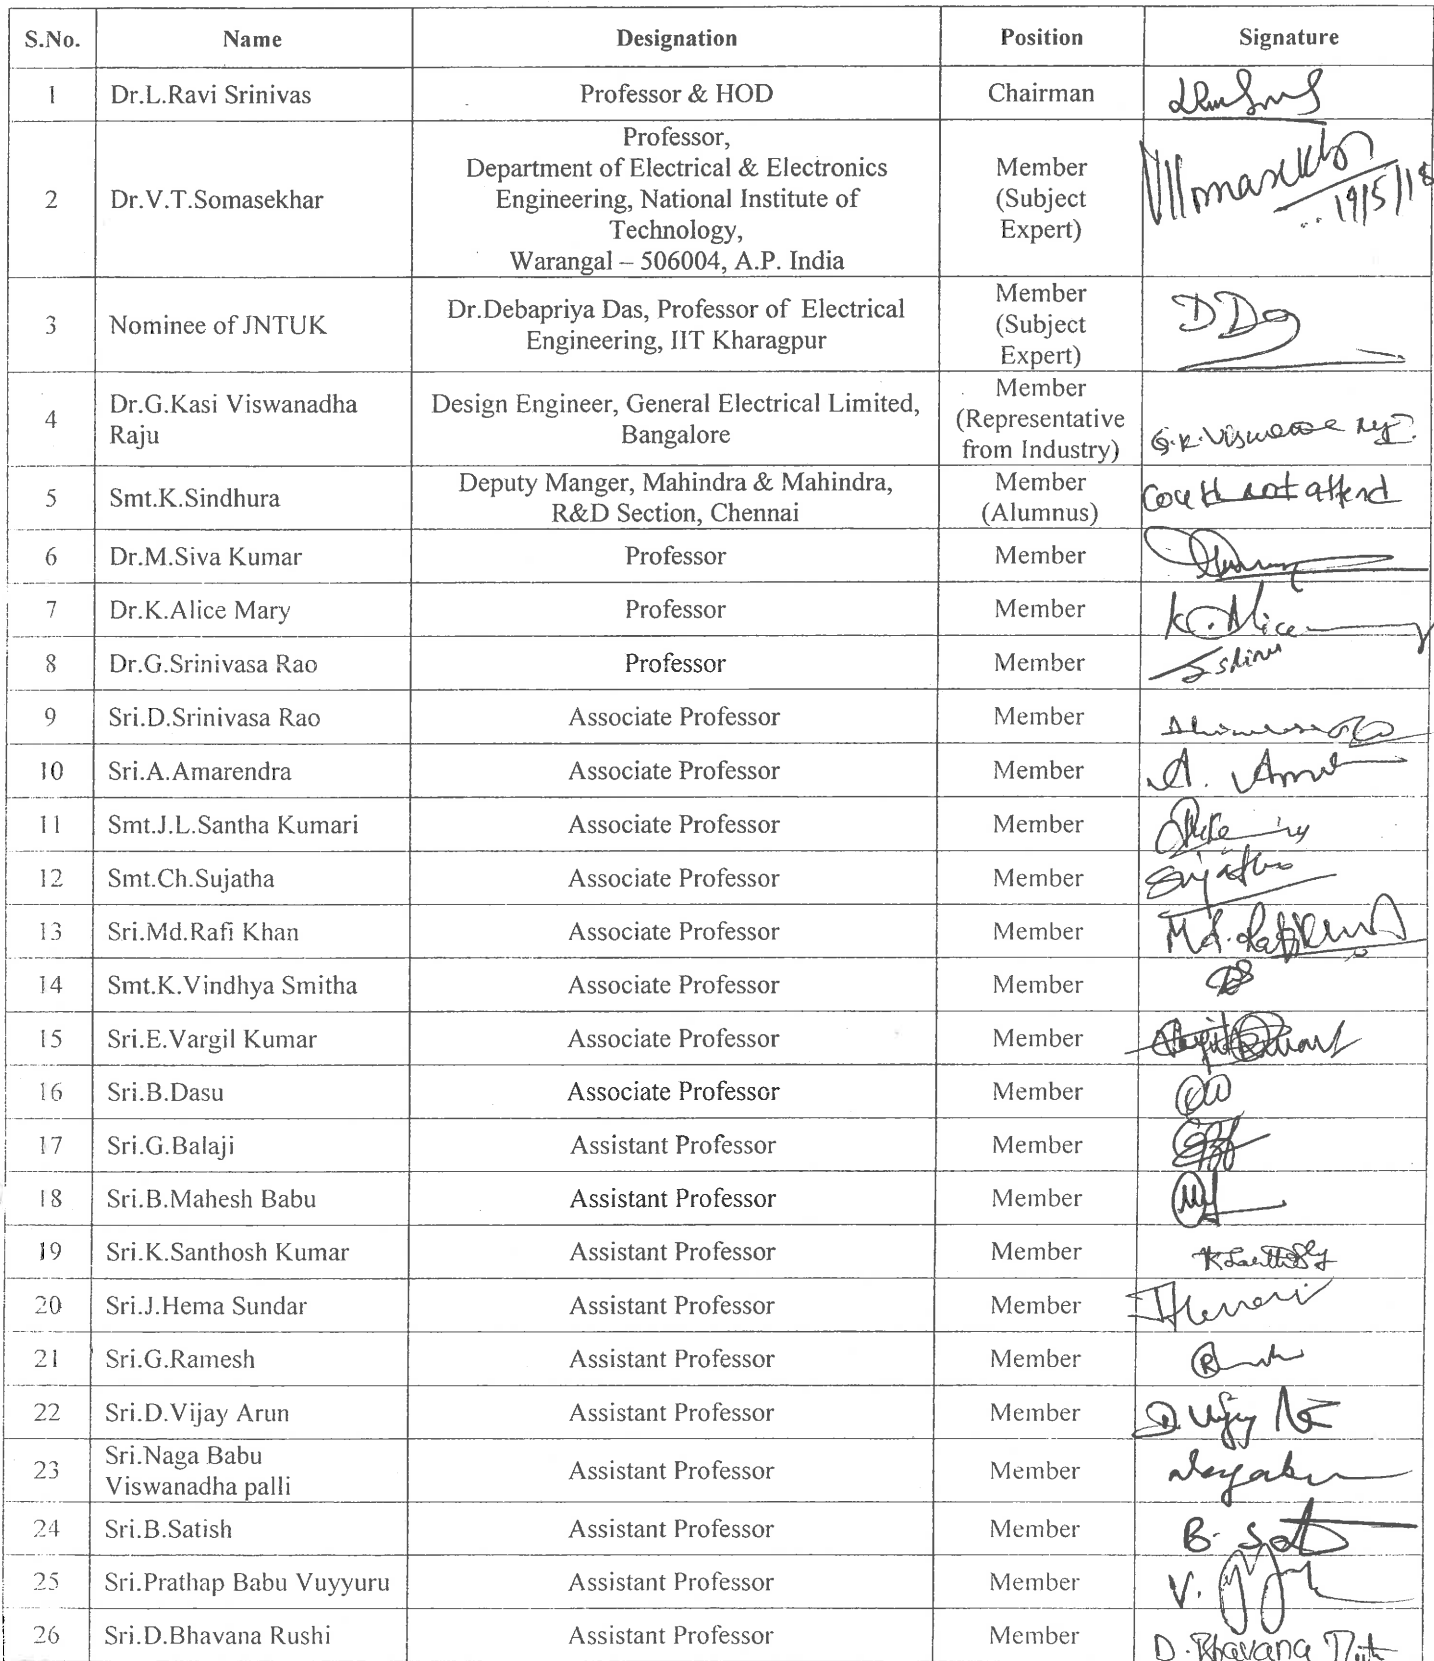 S.No. Name Designation Position Signature
1 Dr.L.Ravi Srinivas Professor & HOD Chairman
Professor,
Department of Electrical & Electronics
Engineering, National Institute of
Technology,
Warangal – 506004, A.P. India
2 Dr.V.T.Somasekhar
Member
(Subject
Expert)
19/5/18
3 Nominee of JNTUK
Dr.Debapriya Das, Professor of Electrical
Engineering, IIT Kharagpur
Member
(Subject
Expert)
4 Dr.G.Kasi Viswanadha
Raju
Design Engineer, General Electrical Limited,
Bangalore
Member
(Representative
from Industry)
5 Smt.K.Sindhura
Deputy Manger, Mahindra & Mahindra,
R&D Section, Chennai
Member
(Alumnus)
could not attend
6 Dr.M.Siva Kumar Professor Member
7 Dr.K.Alice Mary Professor Member K. Alice
8 Dr.G.Srinivasa Rao Professor Member
9 Sri.D.Srinivasa Rao Associate Professor Member
10 Sri.A.Amarendra Associate Professor Member
11 Smt.J.L.Santha Kumari Associate Professor Member
12 Smt.Ch.Sujatha Associate Professor Member Sujatha
13 Sri.Md.Rafi Khan Associate Professor Member
14 Smt.K.Vindhya Smitha Associate Professor Member
15 Sri.E.Vargil Kumar Associate Professor Member
16 Sri.B.Dasu Associate Professor Member
17 Sri.G.Balaji Assistant Professor Member
18 Sri.B.Mahesh Babu Assistant Professor Member
19 Sri.K.Santhosh Kumar Assistant Professor Member
20 Sri.J.Hema Sundar Assistant Professor Member
21 Sri.G.Ramesh Assistant Professor Member
22 Sri.D.Vijay Arun Assistant Professor Member D. Vijay
23 Sri.Naga Babu
Viswanadha palli
Assistant Professor Member
24 Sri.B.Satish Assistant Professor Member
25 Sri.Prathap Babu Vuyyuru Assistant Professor Member
26 Sri.D.Bhavana Rushi Assistant Professor Member D. Bhavana